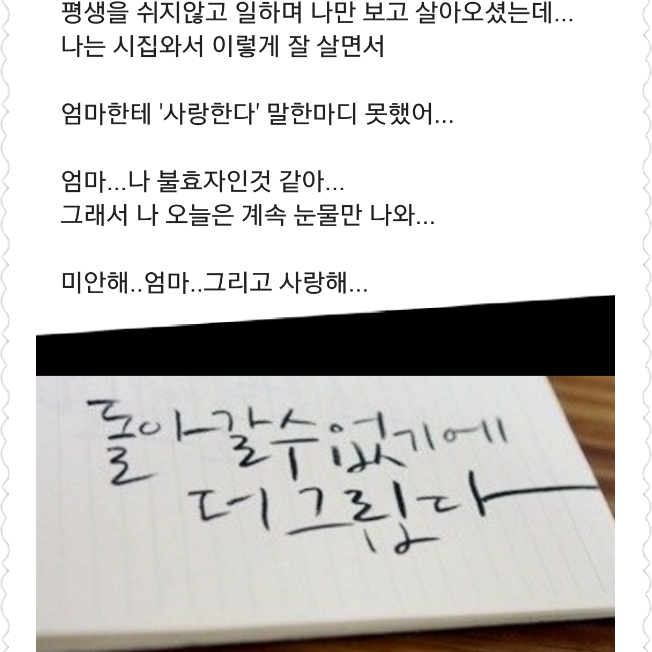 평생을 쉬지않고 일하며 나만 보고 살아오셨는데...
나는 시집와서 이렇게 잘 살면서
엄마한테 '사랑한다' 말한마디 못했어...
엄마...나 불효자인것 같아...
그래서 나 오늘은 계속 눈물만 나와...
미안해..엄마..그리고 사랑해...
돌아갈수 없기에
더 그립다